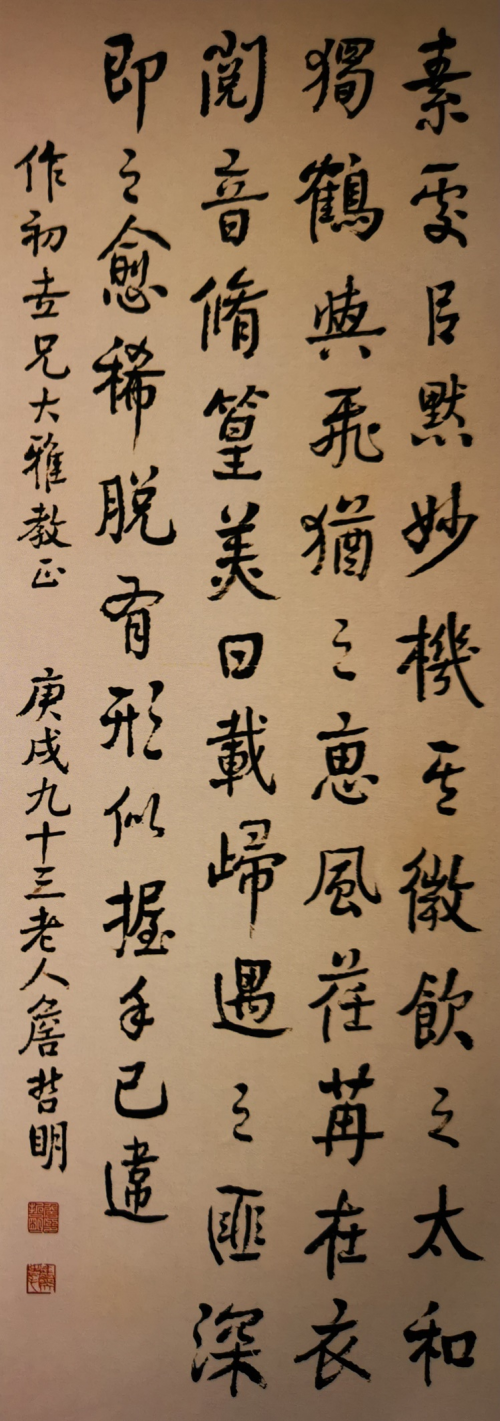 素處㠯默妙機其微飲之太和
獨鶴與飛猶之惠風荏苒在衣
閱音脩篁美曰載歸遇之匪深
即之愈稀脫有形似握手已違
作初兄大雅教正 庚戌九十三老人詹哲明